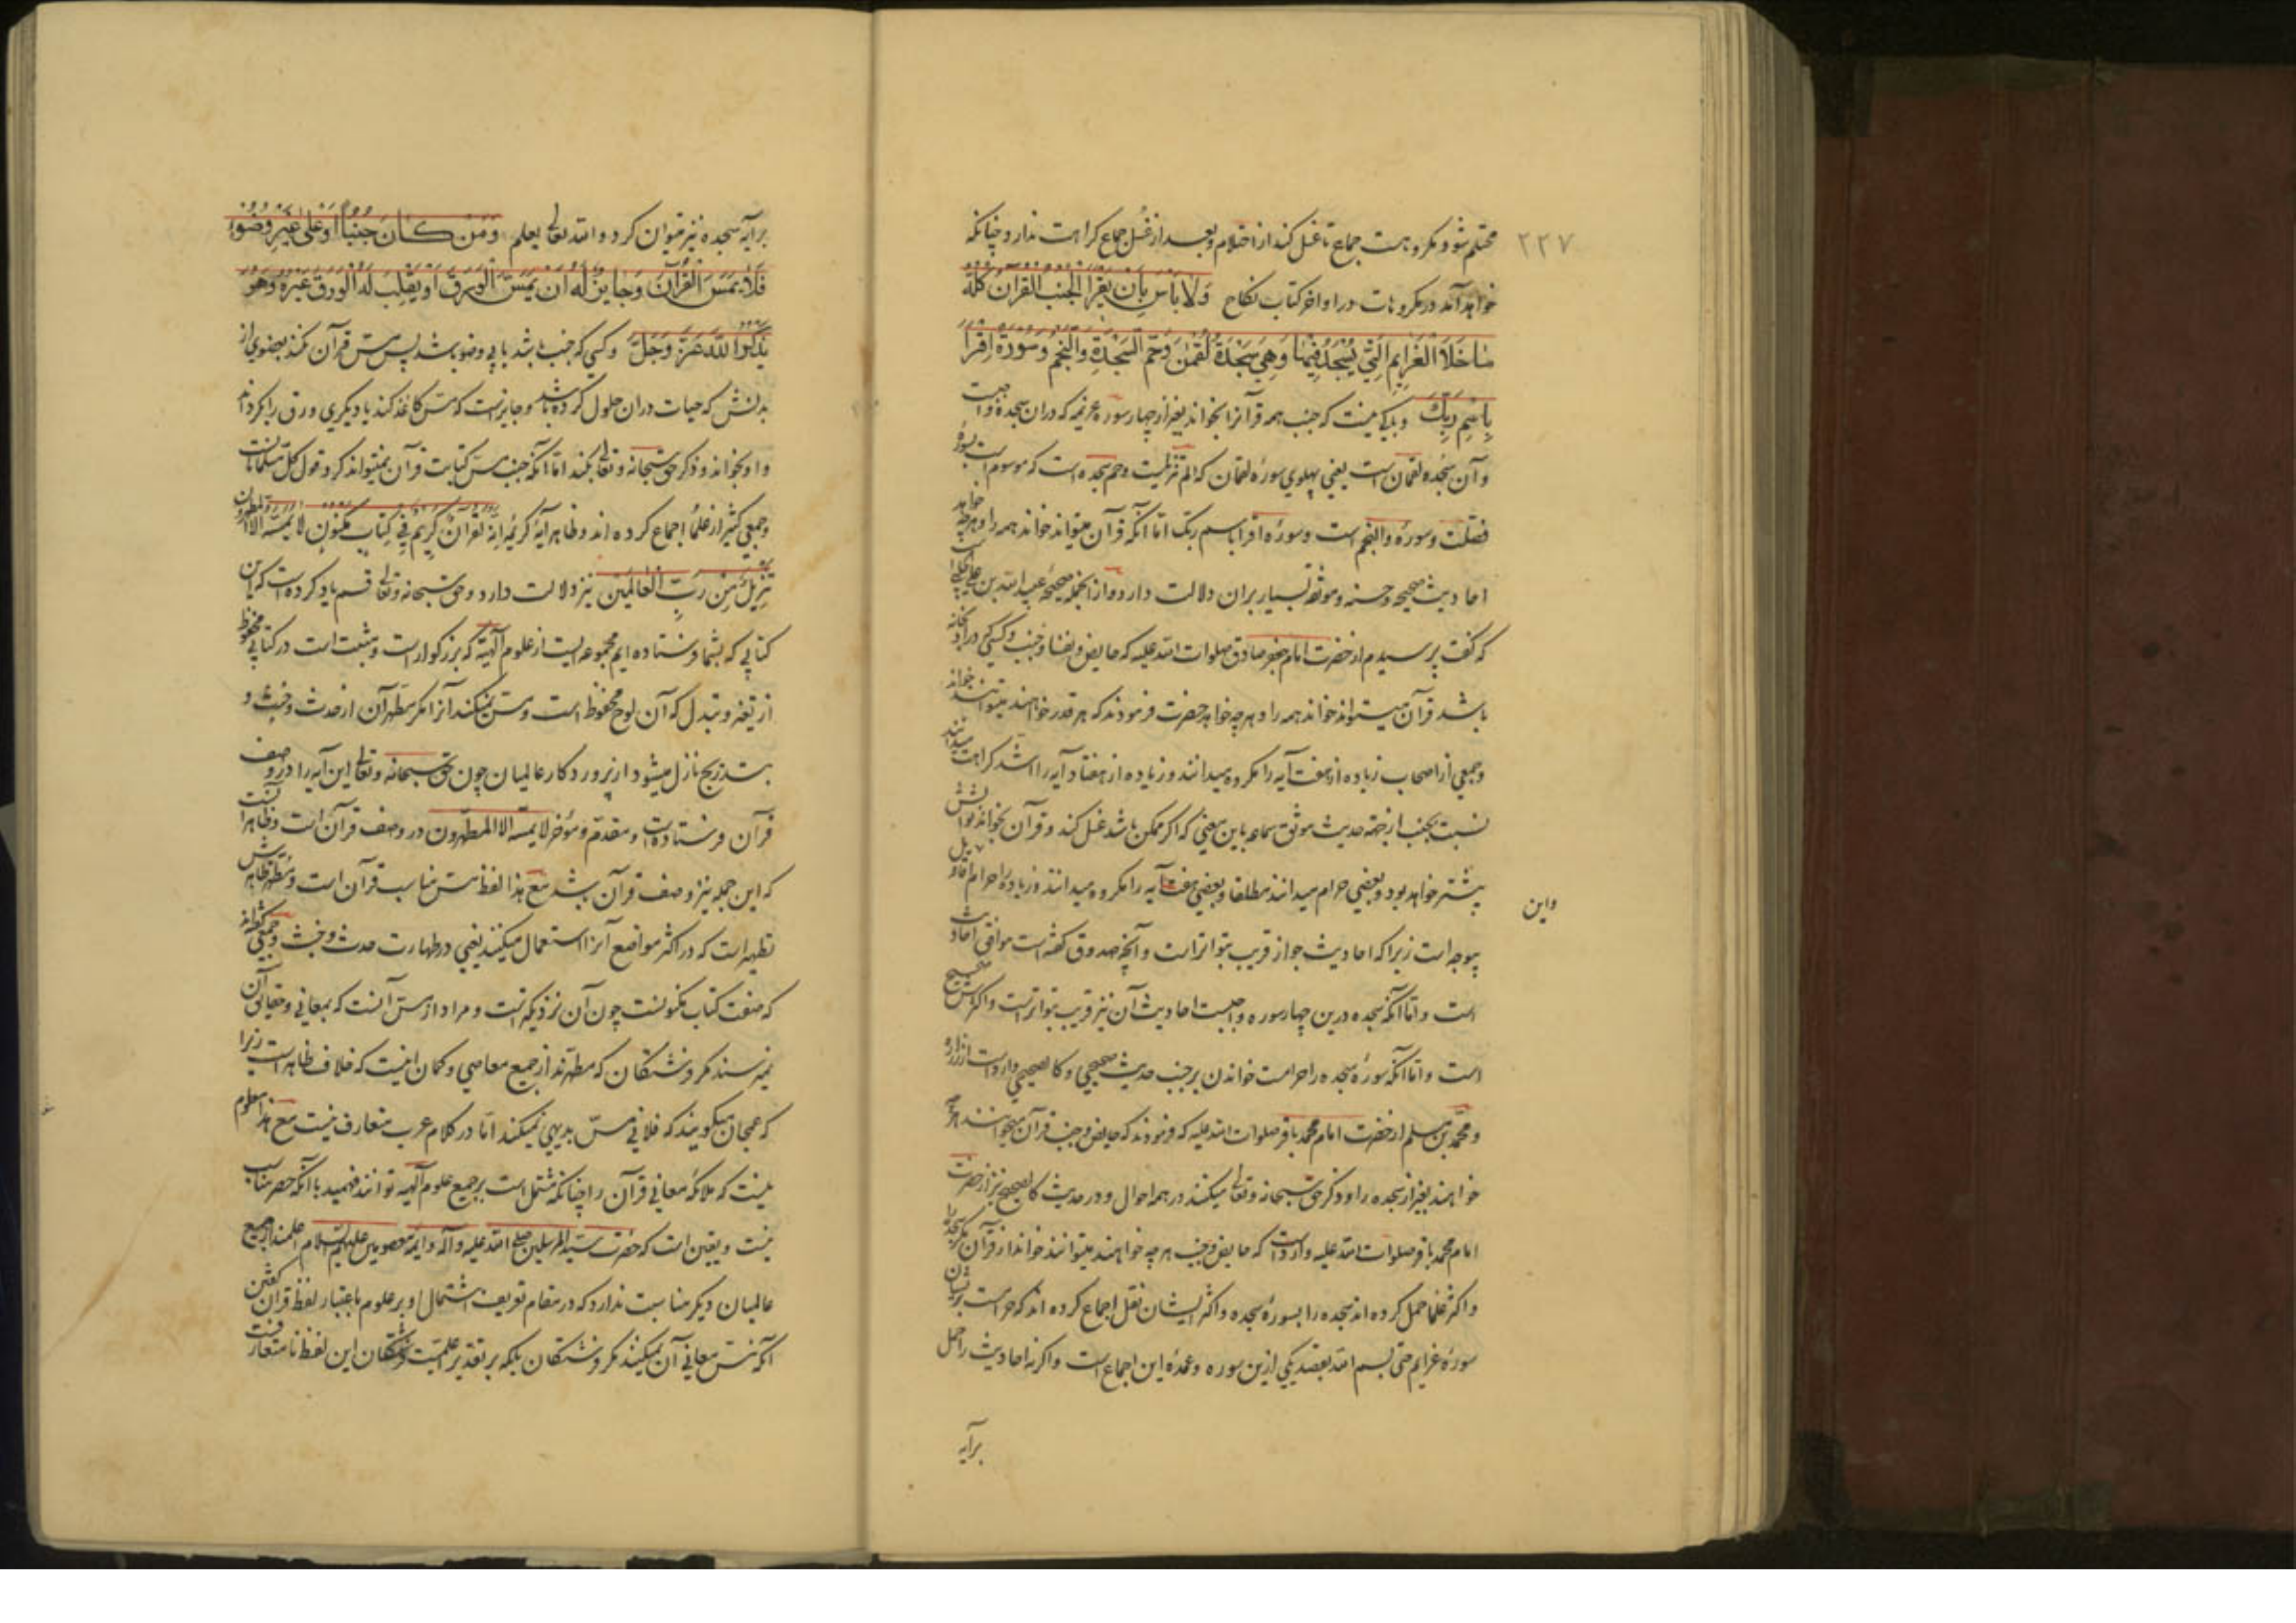 ۲۲۷
محتلم شود و مکروهست جماع تا غسل کند از احتلام و بعد از غسل جماع کراهت ندارد چنانکه
خواهد آمد در مکروهات در اواخر کتاب نکاح وَلَا بَأْسَ بِأَنْ يَقْرَأَ الْجُنُبُ الْقُرْآنَ كُلَّهُ
مَا خَلَا الْعَزَايِمَ الَّتِي يُسْجَدُ فِيهَا وَهِيَ سَجْدَةُ لُقْمٰنَ وَحم السَّجْدَةِ وَالنَّجْمِ وَسُورَةُ اقْرَأْ
بِاسْمِ رَبِّكَ و باکی نیست که جنب همه قرآنرا بخواند بغیر از چهار سوره عزیمه که دران سجده واجبست
و آن سجده لقمان است یعنی پهلوی سوره لقمان که الم تنزیلست و حم سجده است که موسوم است بسوره
فصلت و سوره والنجم است و سوره اقرا باسم ربک اما آنکه قرآن میتواند خواند همه را و هرچه خواهد
احادیث صحیحه و حسنه و موثقه بسیار بران دلالت دارد و از انجمله صحیحه عبید الله بن علی حلبی است
که گفت پرسیدم از حضرت امام جعفر صادق صلوات الله علیه که حایض و نفسا و جنب و کسی که در ادبخانه
باشد قرآن میتواند خواند همه را و هرچه خواهد حضرت فرمودند که هر قدر خواهند میتوانند خواند
و جمعی از اصحاب زیاده از هفت آیه را مکروه میدانند و زیاده از هفتاد آیه را اشد کراهت میدانند
نسبت بجنب از جهة حدیث موثق سماعه باین معنی که اگر ممکن باشد غسل کند و قرآن بخواند ثوابش
بیشتر خواهد بود و بعضی حرام میدانند مطلقا و بعضی هفت آیه را مکروه میدانند و زیاده را حرام و این اقاویل
واین
بیوجه است زیرا که احادیث جواز قریب بتواتر است و آنچه صدوق گفته است موافق احادیث
است و اما آنکه سجده درین چهار سوره واجبست احادیث آن نیز قریب بتواتر است و اکثرش صحیح
است و اما آنکه سوره سجده را حرامست خواندن بر جنب حدیث صحیحی و کالصحیحی وارد است از زراره
و محمد بن مسلم از حضرت امام محمد باقر صلوات الله علیه که فرمودند که حایض و جنب قرآن میخوانند هرچه
خواهند بغیر از سجده را و ذکر حق سبحانه و تعالی میکنند در همه احوال و در حدیث کالصحیح نیز از حضرت
امام محمد باقر صلوات الله علیه وارد است که حایض و جنب هر چه خواهند میتوانند خواند از قرآن مگر سجده را
و اکثر علما حمل کرده اند سجده را بسوره سجده و اکثر ایشان نقل اجماع کرده اند که حرامست بریشان
سوره عزایم حتی بسم الله بقصد یکی ازین سوره و عمده این اجماع است و اگر نه احادیث را حمل
برآیه
برآیه سجده نیز میتوان کرد و الله تعالی یعلم وَمَنْ كَانَ جُنُبًا أَوْ عَلىٰ غَيْرِ وُضُوءٍ
فَلَا يَمَسَّ الْقُرْآنَ وَجَايِزٌ لَهُ أَنْ يَمَسَّ الْوَرَقَ أَوْ يُقَلِّبَ لَهُ الْوَرَقَ غَيْرُهُ وَهُوَ
يَذْكُرُ اللَّهَ عَزَّ وَجَلَّ و کسی که جنب باشد یا بی وضو باشد پس مس قرآن نکند بعضوی از
بدنش که حیات دران حلول کرده باشد و جایز است که مس کاغذ کند یا دیگری ورق را گرداند
و او بخواند و ذکر حق سبحانه و تعالی بکند اما آنکه جنب مس کتابت قرآن نمیتواند کرد قول کل مسلمانانست
و جمعی کثیر از علما اجماع کرده اند و ظاهر آیه کریمه إِنَّهُ لَقُرْآنٌ كَرِيمٌ فِي كِتَابٍ مَكْنُونٍ لَا يَمَسُّهُ إِلَّا الْمُطَهَّرُونَ
تَنْزِيلٌ مِنْ رَبِّ الْعَالَمِينَ نیز دلالت دارد و حق سبحانه و تعالی قسم یاد کرده است که این
کتابی که بشما فرستاده ایم مجموعه ایست از علوم الهیه که بزرگوار است و مثبت است در کتابی محفوظ
از تغیر و تبدل که آن لوح محفوظ است و مس نمیکند آنرا مگر مطهران از حدث و خبث و
بتدریج نازل میشود از پروردگار عالمیان چون حق سبحانه و تعالی این آیه را در وصف
قرآن فرستاده است و مقدم و مؤخر لا یمسه الا المطهرون در وصف قرآن است و ظاهرا آنست
که این جمله نیز وصف قرآن باشد مع هذا لفظ مس مناسب قرآن است و مطهر ظاهرش
تطهر است که در اکثر مواضع آنرا استعمال میکنند یعنی در طهارت حدث و خبث و جمعی گفته اند
که صفت کتاب مکنونست چون آن نزدیکتر است و مراد از مس آنست که بمعانی و حقایق آن
نمیرسند مگر فرشتگان که مطهرند از جمیع معاصی و گمان اینست که خلاف ظاهر است زیرا
که عجمان میگویند که فلانی مس بدیهی نمیکند اما در کلام عرب متعارف نیست مع هذا معلوم
نیست که ملائکه معانی قرآن را چنانکه مشتمل است بر جمیع علوم الهیه توانند فهمید با آنکه حصر مناسب
نیست و یقین است که حضرت سید المرسلین صلی الله علیه و آله و ایمه معصومین علیهم السلام اعلمند از جمیع
عالمیان دیگر مناسبت ندارد که در مقام تعریف اشتمال او بر علوم باعتبار لفظ قرآن گفتن
آنکه مس معانی آن نمیکنند مگر فرشتگان بلکه بر تقدیر اعلمیت فرشتگان این لفظ نا متعارفست